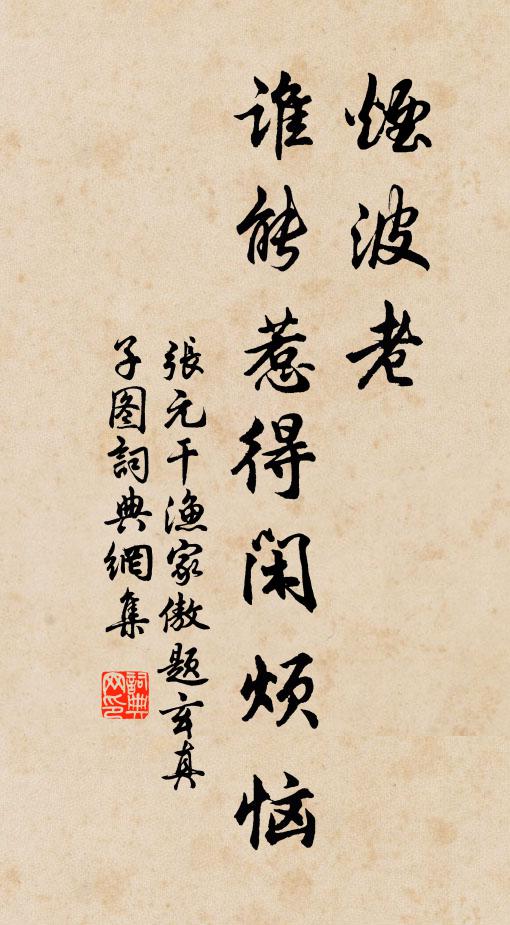 煙波老
谁能惹得闲烦恼
張元干漁家傲题玄真
子图詞典網集
詞典
网印